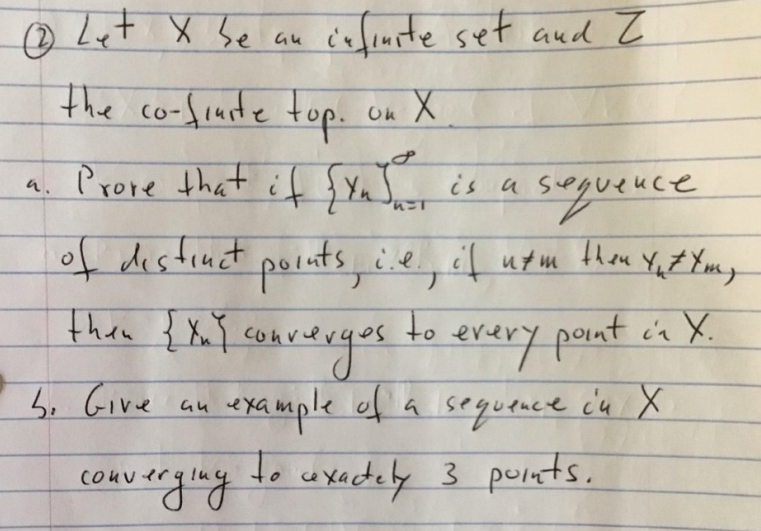 ② Let X be an infinite set and τ
the co-finite top. on X.
a. Prove that if {xₙ}ₙ₌₁^∞ is a sequence
of distinct points, i.e., if n≠m then xₙ≠xₘ,
then {xₙ} converges to every point in X.
b. Give an example of a sequence in X
converging to exactely 3 points.